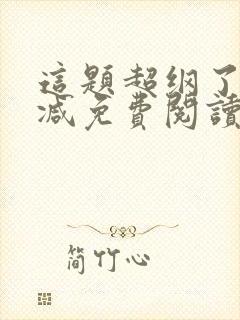 這題超纲了
减免費閱讀
简竹心